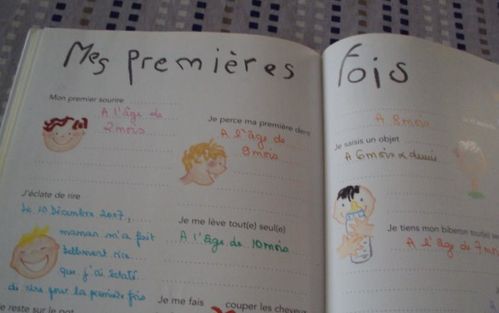 Mes premières fois
Mon premier sourire
A l'âge de
2 mois
Je perce ma première dent
A l'âge de
8 mois
J'éclate de rire
Le 10 Décembre 2007,
maman m'a fait
tellement rire
que j'ai éclaté
de rire pour la première fois
Je me lève tout(e) seul(e)
A l'âge de 10 mois
Je me fais couper les cheveux
reste sur le pot
A 8 mois
Je saisis un objet
A 6 mois & demie
Je tiens mon biberon tout(e) se
A l'âge de 7 mois